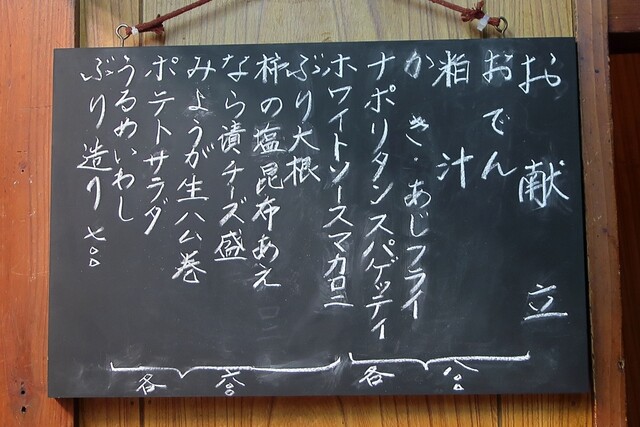 お献立
おでん
粕汁
かき・あじフライ
ナポリタンスパゲッティ
各 八〇〇
ホワイトソースマカロニ
ぶり大根
柿の塩昆布あえ
なら漬チーズ盛
みょうが生ハム巻
ポテトサラダ
うるめいわし
各 六〇〇
ぶり造り 七〇〇